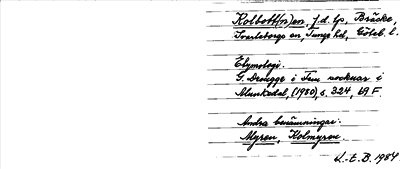 Kolbott(n)en, f.d. lp, Bräcke,
Svarteborgs sn, Tunge hd, Göteb. l.
Etymologi.
G. Drougge i Fem socknar i
Munkedal, (1980), s. 324, 69 F.
Andra benämningar:
Myren, Kolmyren.
U.-E.B. 1984